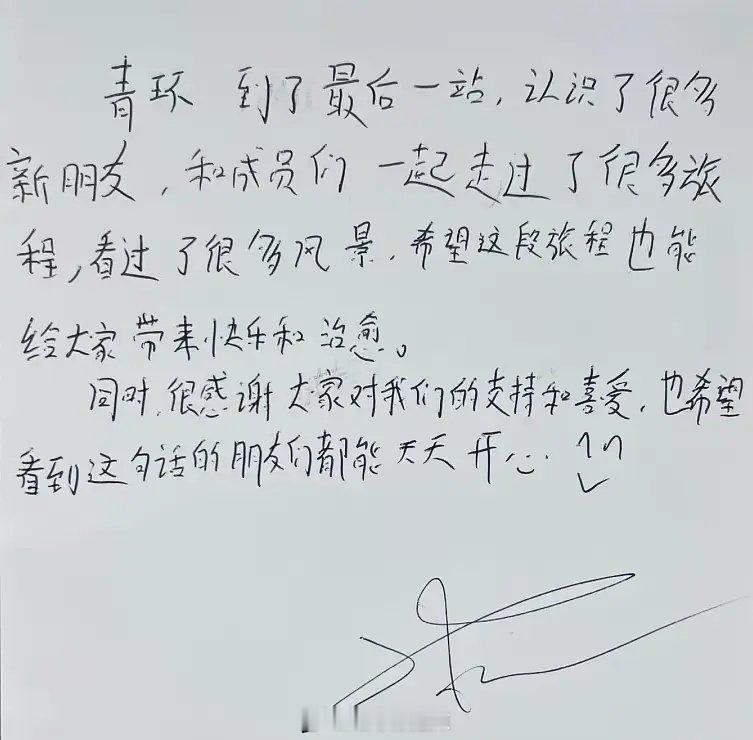 青环 到了最后一站，认识了很多
新朋友，和成员们一起走过了很多旅
程，看过了很多风景，希望这段旅程也能
给大家带来快乐和治愈。
同时，很感谢大家对我们的支持和喜爱，也希望
看到这句话的朋友们都能天天开心.